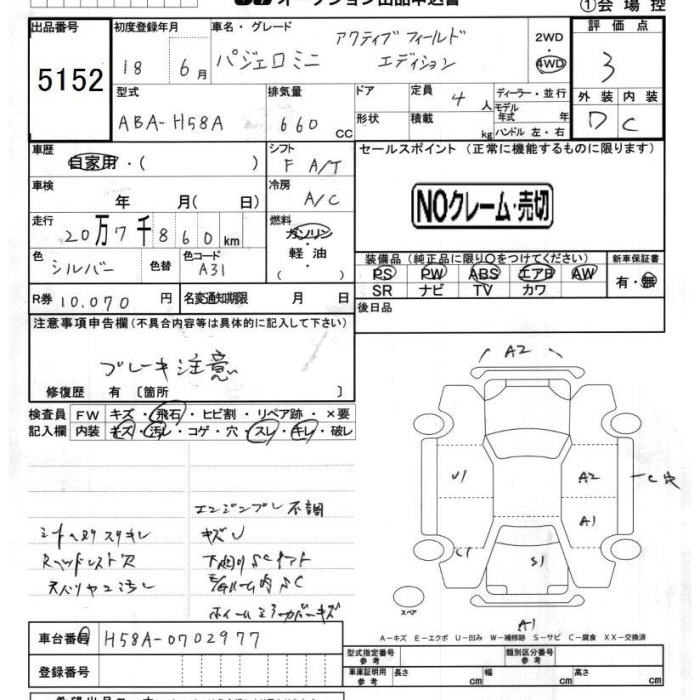 オークション出品申込書
①会場控
出品番号
5152
初度登録年月
18 6月
車名・グレード
パジェロミニ アクティブフィールド エディション
2WD
4WD
評価点
3
型式
ABA-H58A
排気量
660 CC
ドア
形状
定員 4人
積載 kg
ディーラー・並行
モデル年式 年
ハンドル 左・右
外装 内装
D C
車歴
自家用・( )
シフト
F A/T
セールスポイント (正常に機能するものに限ります)
NOクレーム・売切
車検
年 月( 日)
冷房
A/C
走行
20万7千860km
燃料
ガソリン
軽油
( )
色
シルバー
色替
色コード
A31
装備品 (純正品に限り○をつけてください)
PS PW ABS エアB AW
SR ナビ TV カワ
新車保証書
有・無
R券 10.070 円
名変通知期限 月 日
後日品
注意事項申告欄(不具合内容等は具体的に記入して下さい)
ブレーキ注意
修復歴 有 〔箇所 〕
検査員記入欄
FW キズ・飛石・ヒビ割・リペア跡・×要
内装 キズ・汚レ・コゲ・穴・スレ・キレ・破レ
エンジンブレ不調
キズU
Rヘッドレスト欠
A2
U1
A2
A1
C1
S1
A1
C穴
スペア
A−キズ E−エクボ U−凹み W−補修跡 S−サビ C−腐食 XX−交換済
車台番号 H58A-0702977
登録番号
型式指定番号 参考
類別区分番号 参考
車庫証明用 参考
長さ cm
幅 cm
高さ cm